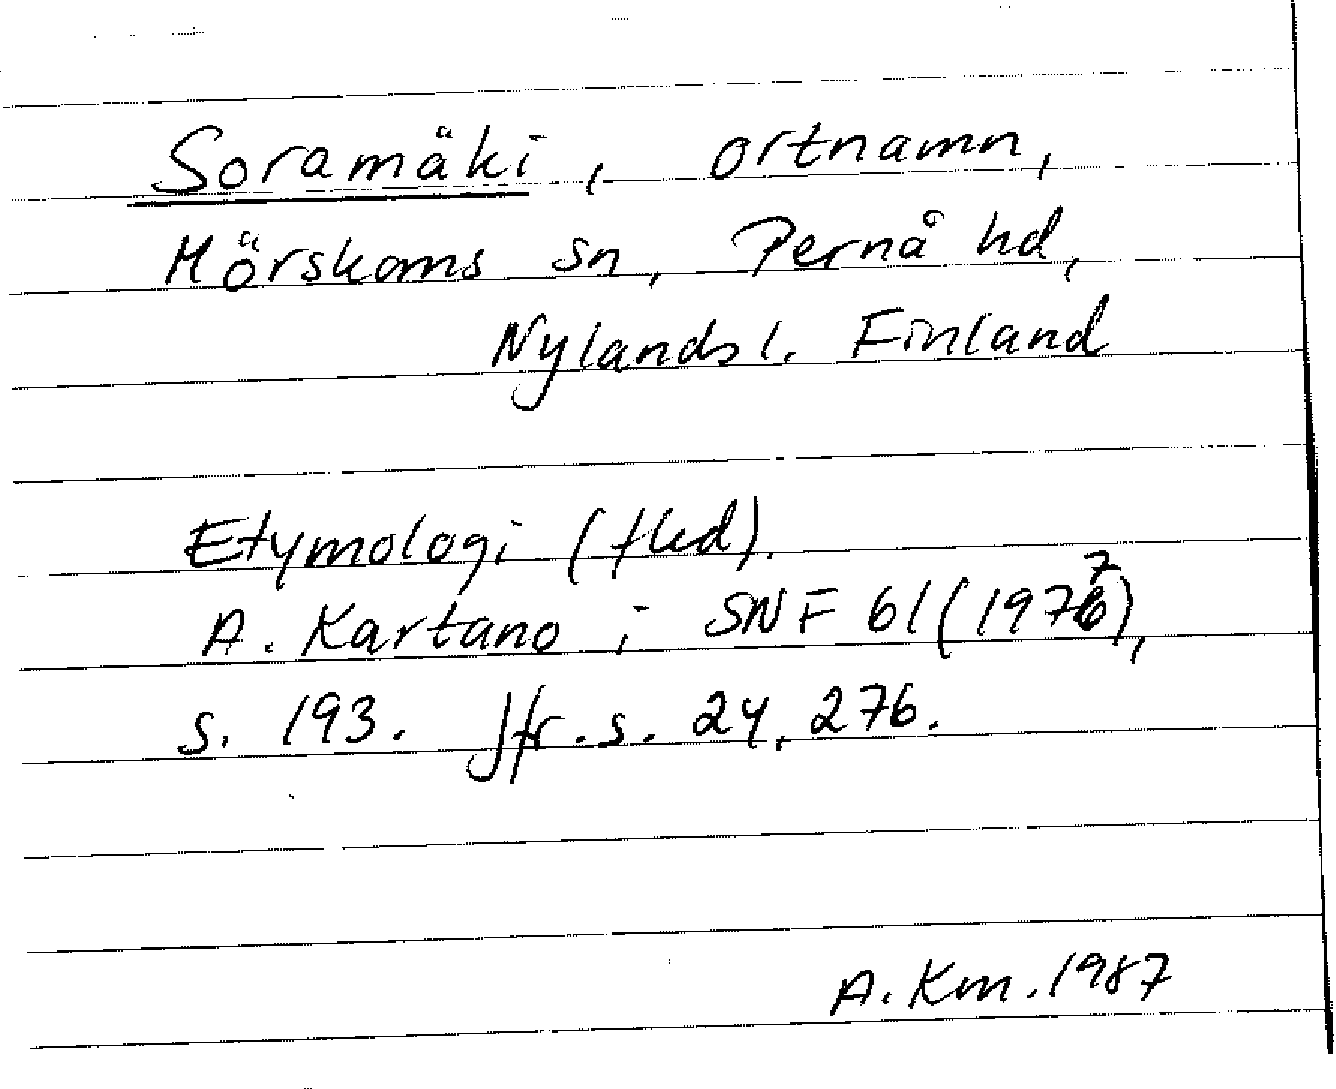 Soramäki, ortnamn,
Mörskoms sn, Pernå hd,
Nylands l. Finland
Etymologi (fled).
A. Kartano i SNF 61 (1977),
s. 193. Jfr. s. 24, 276.
A. Km. 1987